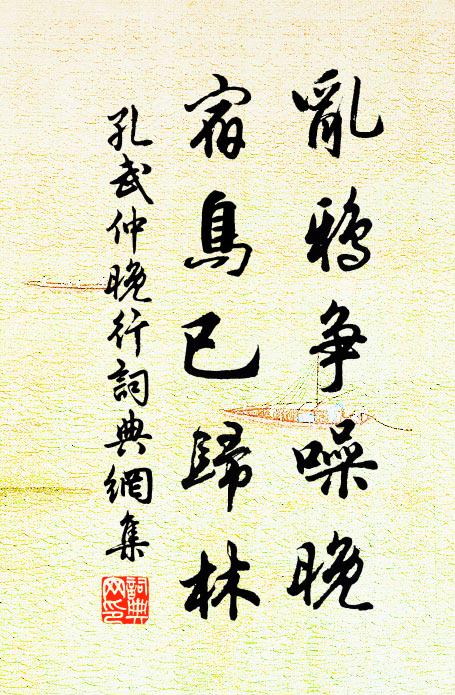 亂鴉争噪晚
宿鳥已歸林
孔武仲晚行詞典網集
詞典网印